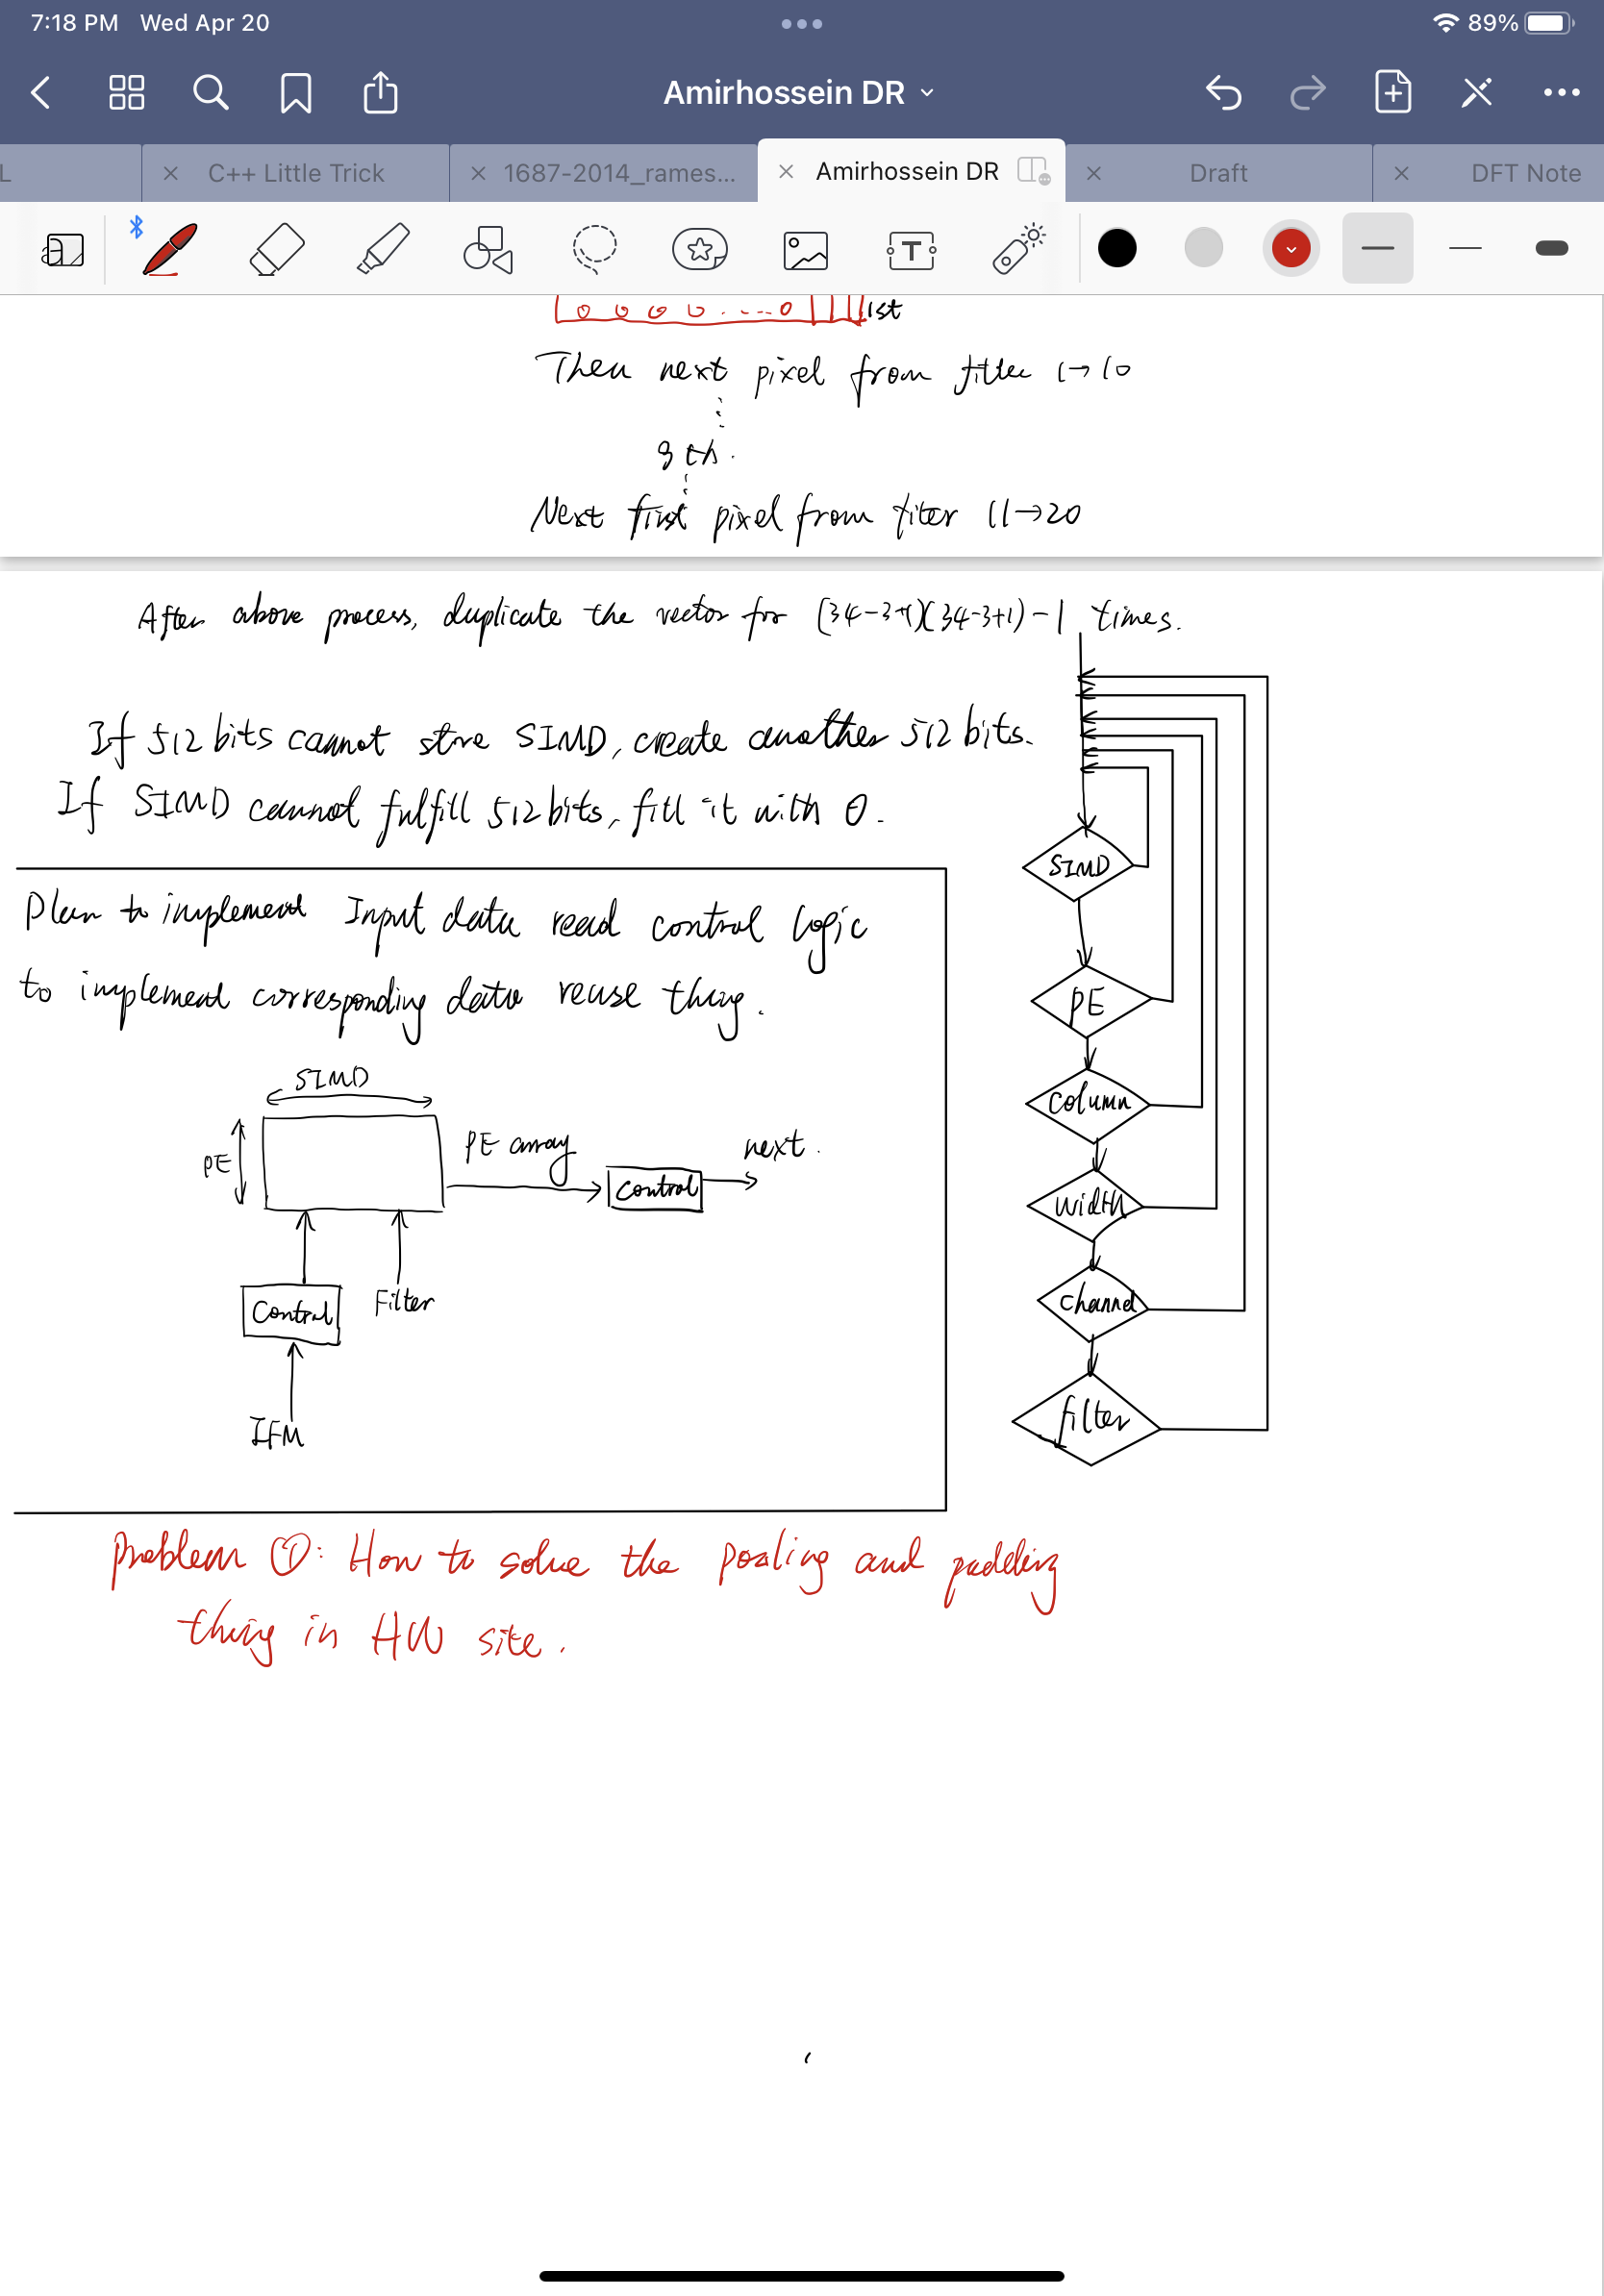 7:18 PM Wed Apr 20
89%
Amirhossein DR
L
C++ Little Trick
1687-2014_rames...
Amirhossein DR
Draft
DFT Note
0 0 0 0 . ... 0 1st
Then next pixel from filter 1→10
9th.
Next first pixel from fiter 11→20
After above process, duplicate the vector for (34-3+1)(34-3+1)-1 times.
If 512 bits cannot store SIMD, create another 512 bits.
If SIMD cannot fulfill 512 bits, fill it with 0.
Plan to implement Input data read control logic
to implement corresponding data reuse thing.
SIMD
PE
PE array
Control
next.
Control
Filter
IFM
SIMD
PE
Column
Width
Channel
filter
Problem ①: How to solve the pooling and padding
thing in HW site.